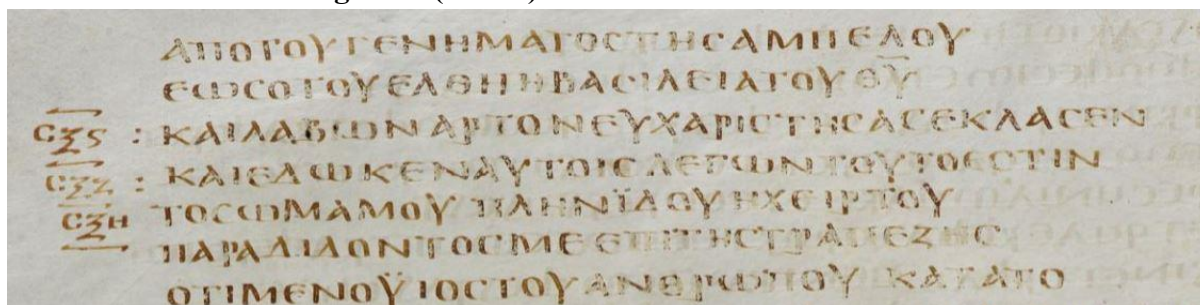 ΑΠΟΤΟΥΓΕΝΗΜΑΤΟϹΤΗϹΑΜΠΕΛΟΥ
ΕΩϹΟΤΟΥΕΛΘΗΗΒΑϹΙΛΕΙΑΤΟΥΘ̅Υ̅
ϹΞϚ : ΚΑΙΛΑΒΩΝΑΡΤΟΝΕΥΧΑΡΙϹΤΗϹΑϹΕΚΛΑϹΕΝ
ϹΞΖ : ΚΑΙΕΔΩΚΕΝΑΥΤΟΙϹΛΕΓΩΝΤΟΥΤΟΕϹΤΙΝ
ϹΞΗ ΤΟϹΩΜΑΜΟΥ ΠΛΗΝΪΔΟΥΗΧΕΙΡΤΟΥ
ΠΑΡΑΔΙΔΟΝΤΟϹΜΕΕΠΙΤΗϹΤΡΑΠΕΖΗϹ
ΟΤΙΜΕΝΟΫΙΟϹΤΟΥΑΝΘΡΩΠΟΥ ΚΑΤΑΤΟ